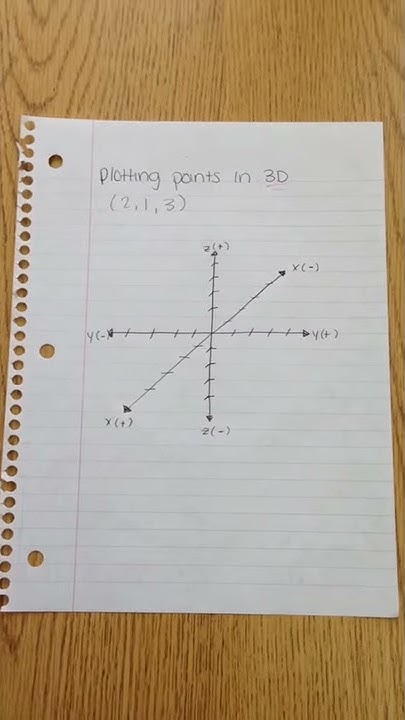 Plotting points in 3D
(2,1,3)
Z(+)
X(-)
Y(-)
Y(+)
X(+)
Z(-)